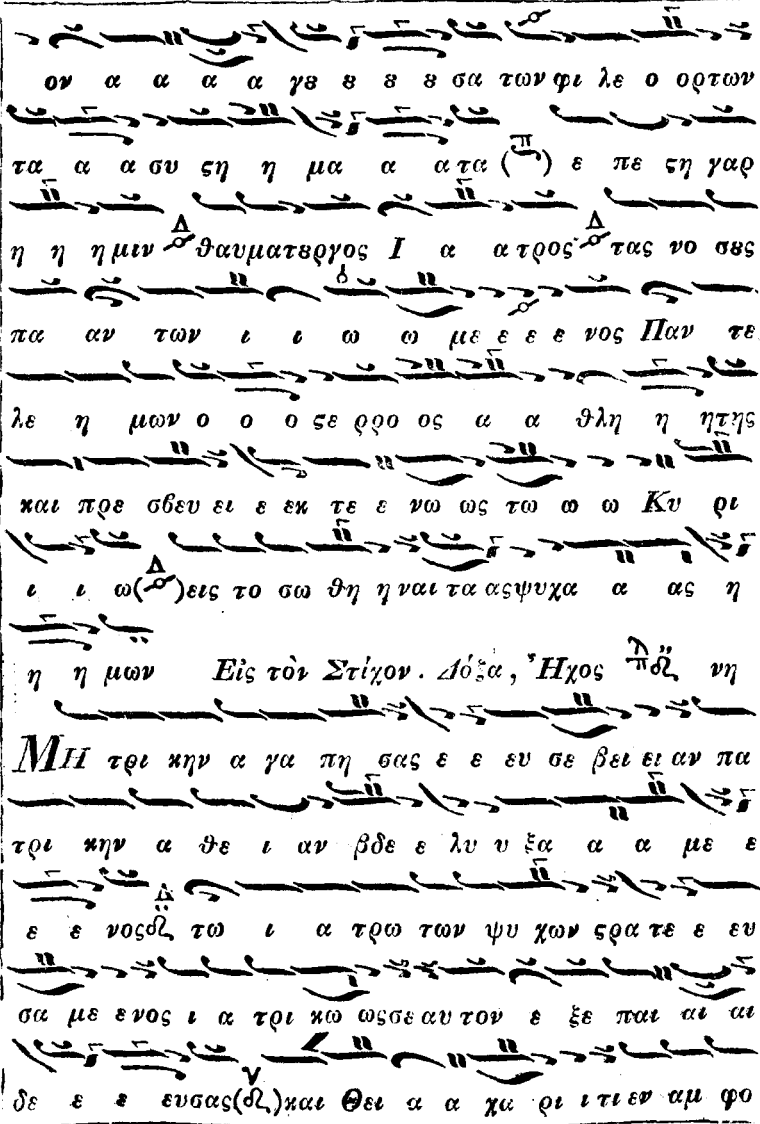 ον α α α α γȣ ȣ ȣ ȣ σα των φι λε ο ορτων
τα α α συ ϛη η μα α α τα (π) ε πε ϛη γαρ
η η η μιν Δ θαυματȣργος Ι α α τρος Δ τας νο σȣς
πα αν των ι ι ω ω με ε ε ε νος Παν τε
λε η μων ο ο ο ϛε ρρο ος α α θλη η ητης
και πρε σβευ ει ε εκ τε ε νω ως τω ω ω Κυ ρι
ι ι ω(Δ)εις το σω θη η ναι τα ας ψυχα α ας η
η η μων Εἰς τὸν Στίχον. Δόξα, Ἦχος νη
ΜΗ τρι κην α γα πη σας ε ε ευ σε βει ει αν πα
τρι κην α θε ι αν βδε ε λυ υ ξα α α με ε
ε ε νος Δ τω ι α τρω των ψυ χων ϛρα τε ε ευ
σα με ε νος ι α τρι κω ως σε αυ τον ε ξε παι αι αι
δε ε ε ευσας(ν)και Θει α α χα ρι ι τι εν αμ φο